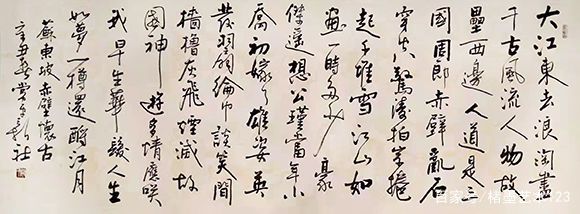 大江東去浪淘盡
千古風流人物故
壘西邊人道是三
國周郎赤壁亂石
穿空驚濤拍岸捲
起千堆雪江山如
畫一時多少豪
傑遙想公瑾當年小
喬初嫁了雄姿英
發羽扇綸巾談笑間
檣櫓灰飛煙滅故
國神遊多情應咲
我早生華髮人生
如夢一樽還酹江月
蘇東坡赤壁懷古
辛丑春
百家号/楮墨艺术123